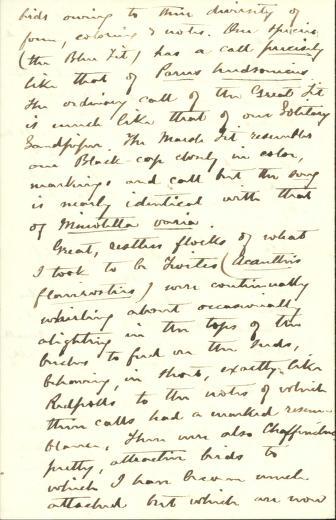 birds owing to their diversity of
form, coloring & notes. One species
(the Blue Tit) has a call precisely
like that of Parus hudsonicus
The ordinary call of the Great Tit
is much like that of our Solitary
Sandpiper. The Marsh Tit resembles
our Black cap closely in color,
markings and call but the song
is nearly identical with that
of Mniotilta varia.
Great, restless flocks of what
I took to be Twites (Acanthis
flavirostris) were continually
whirling about occasionally
alighting in the tops of the
birches to feed on the seeds,
behaving, in short, exactly like
Redpolls to the notes of which
their calls had a marked resem-
blance. There were also Chaffinches
pretty, attractive birds to
which I have become much
attached but which are now